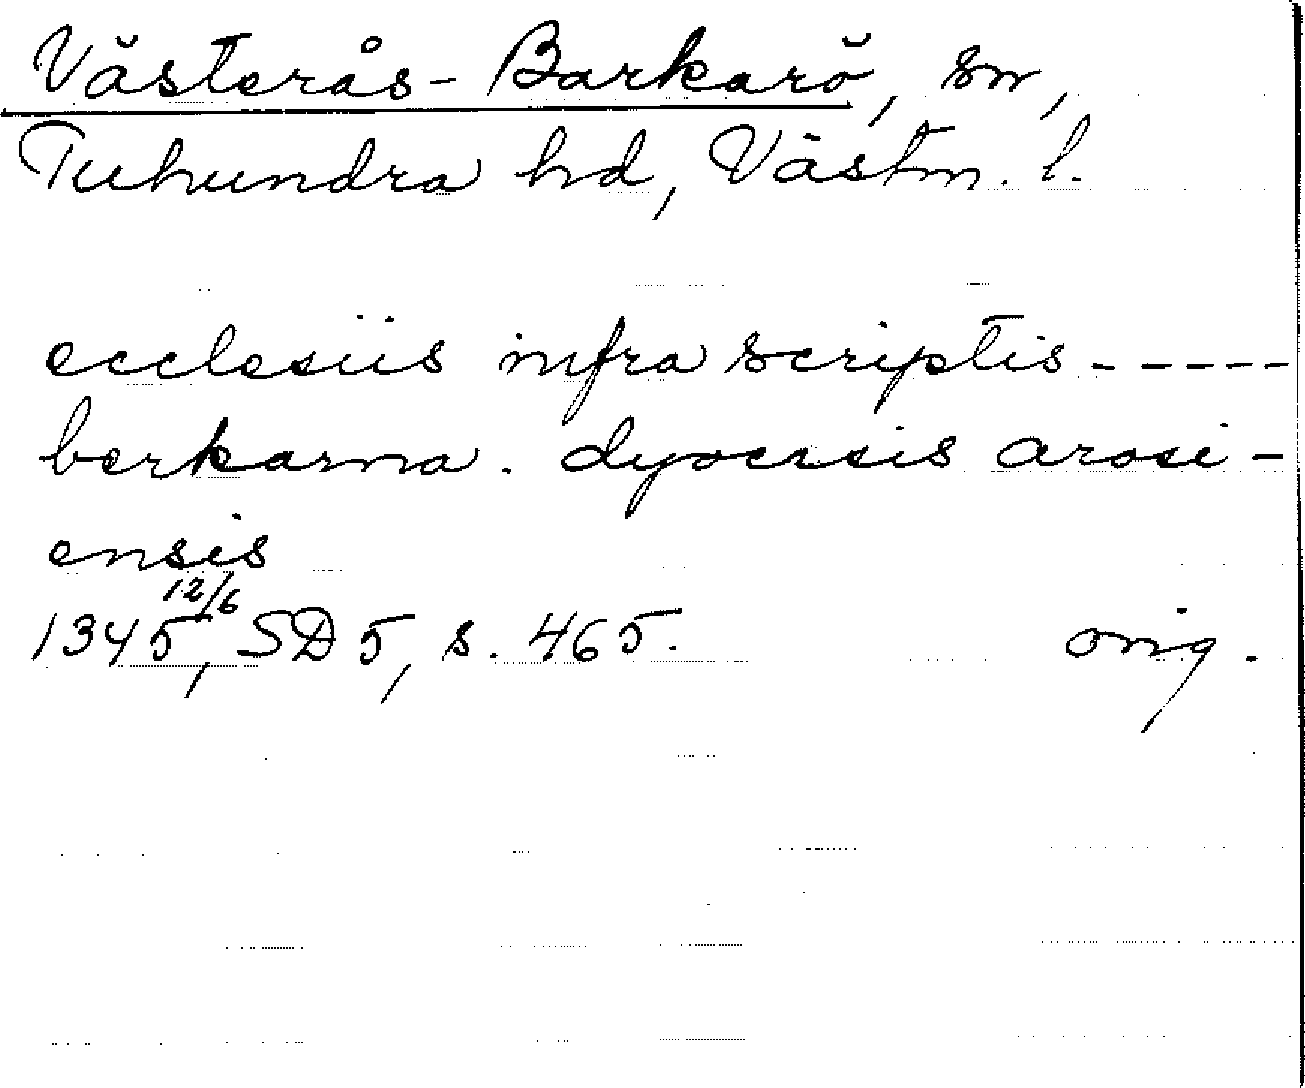 Västerås-Barkarö, sn,
Tuhundra hd, Västm. l.
ecclesiis infra scriptis -----
berkarna. dyocesis arosi-
ensis
1345 12/6, SD 5, s. 465. orig.